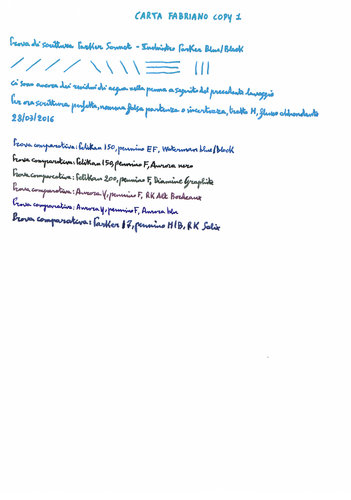 CARTA FABRIANO COPY 1
Prova di scrittura Parker Sonnet - Inchiostro Parker Blue/Black
ci sono ancora dei residui di acqua nella penna a seguito del precedente lavaggio
Per ora scrittura perfetta, nessuna falsa partenza o incertezza, tratto M, flusso abbondante
28/03/2016
Prova comparativa: Pelikan 150, pennino EF, Waterman blue/black
Prova comparativa: Pelikan 150, pennino F, Aurora nero
Prova comparativa: Pelikan 200, pennino F, Diamine Graphite
Prova comparativa: Aurora, pennino F, RK Alt Bordeaux
Prova comparativa: Aurora, pennino F, Aurora blu
Prova comparativa: Parker 17, pennino M/B, RK Salix